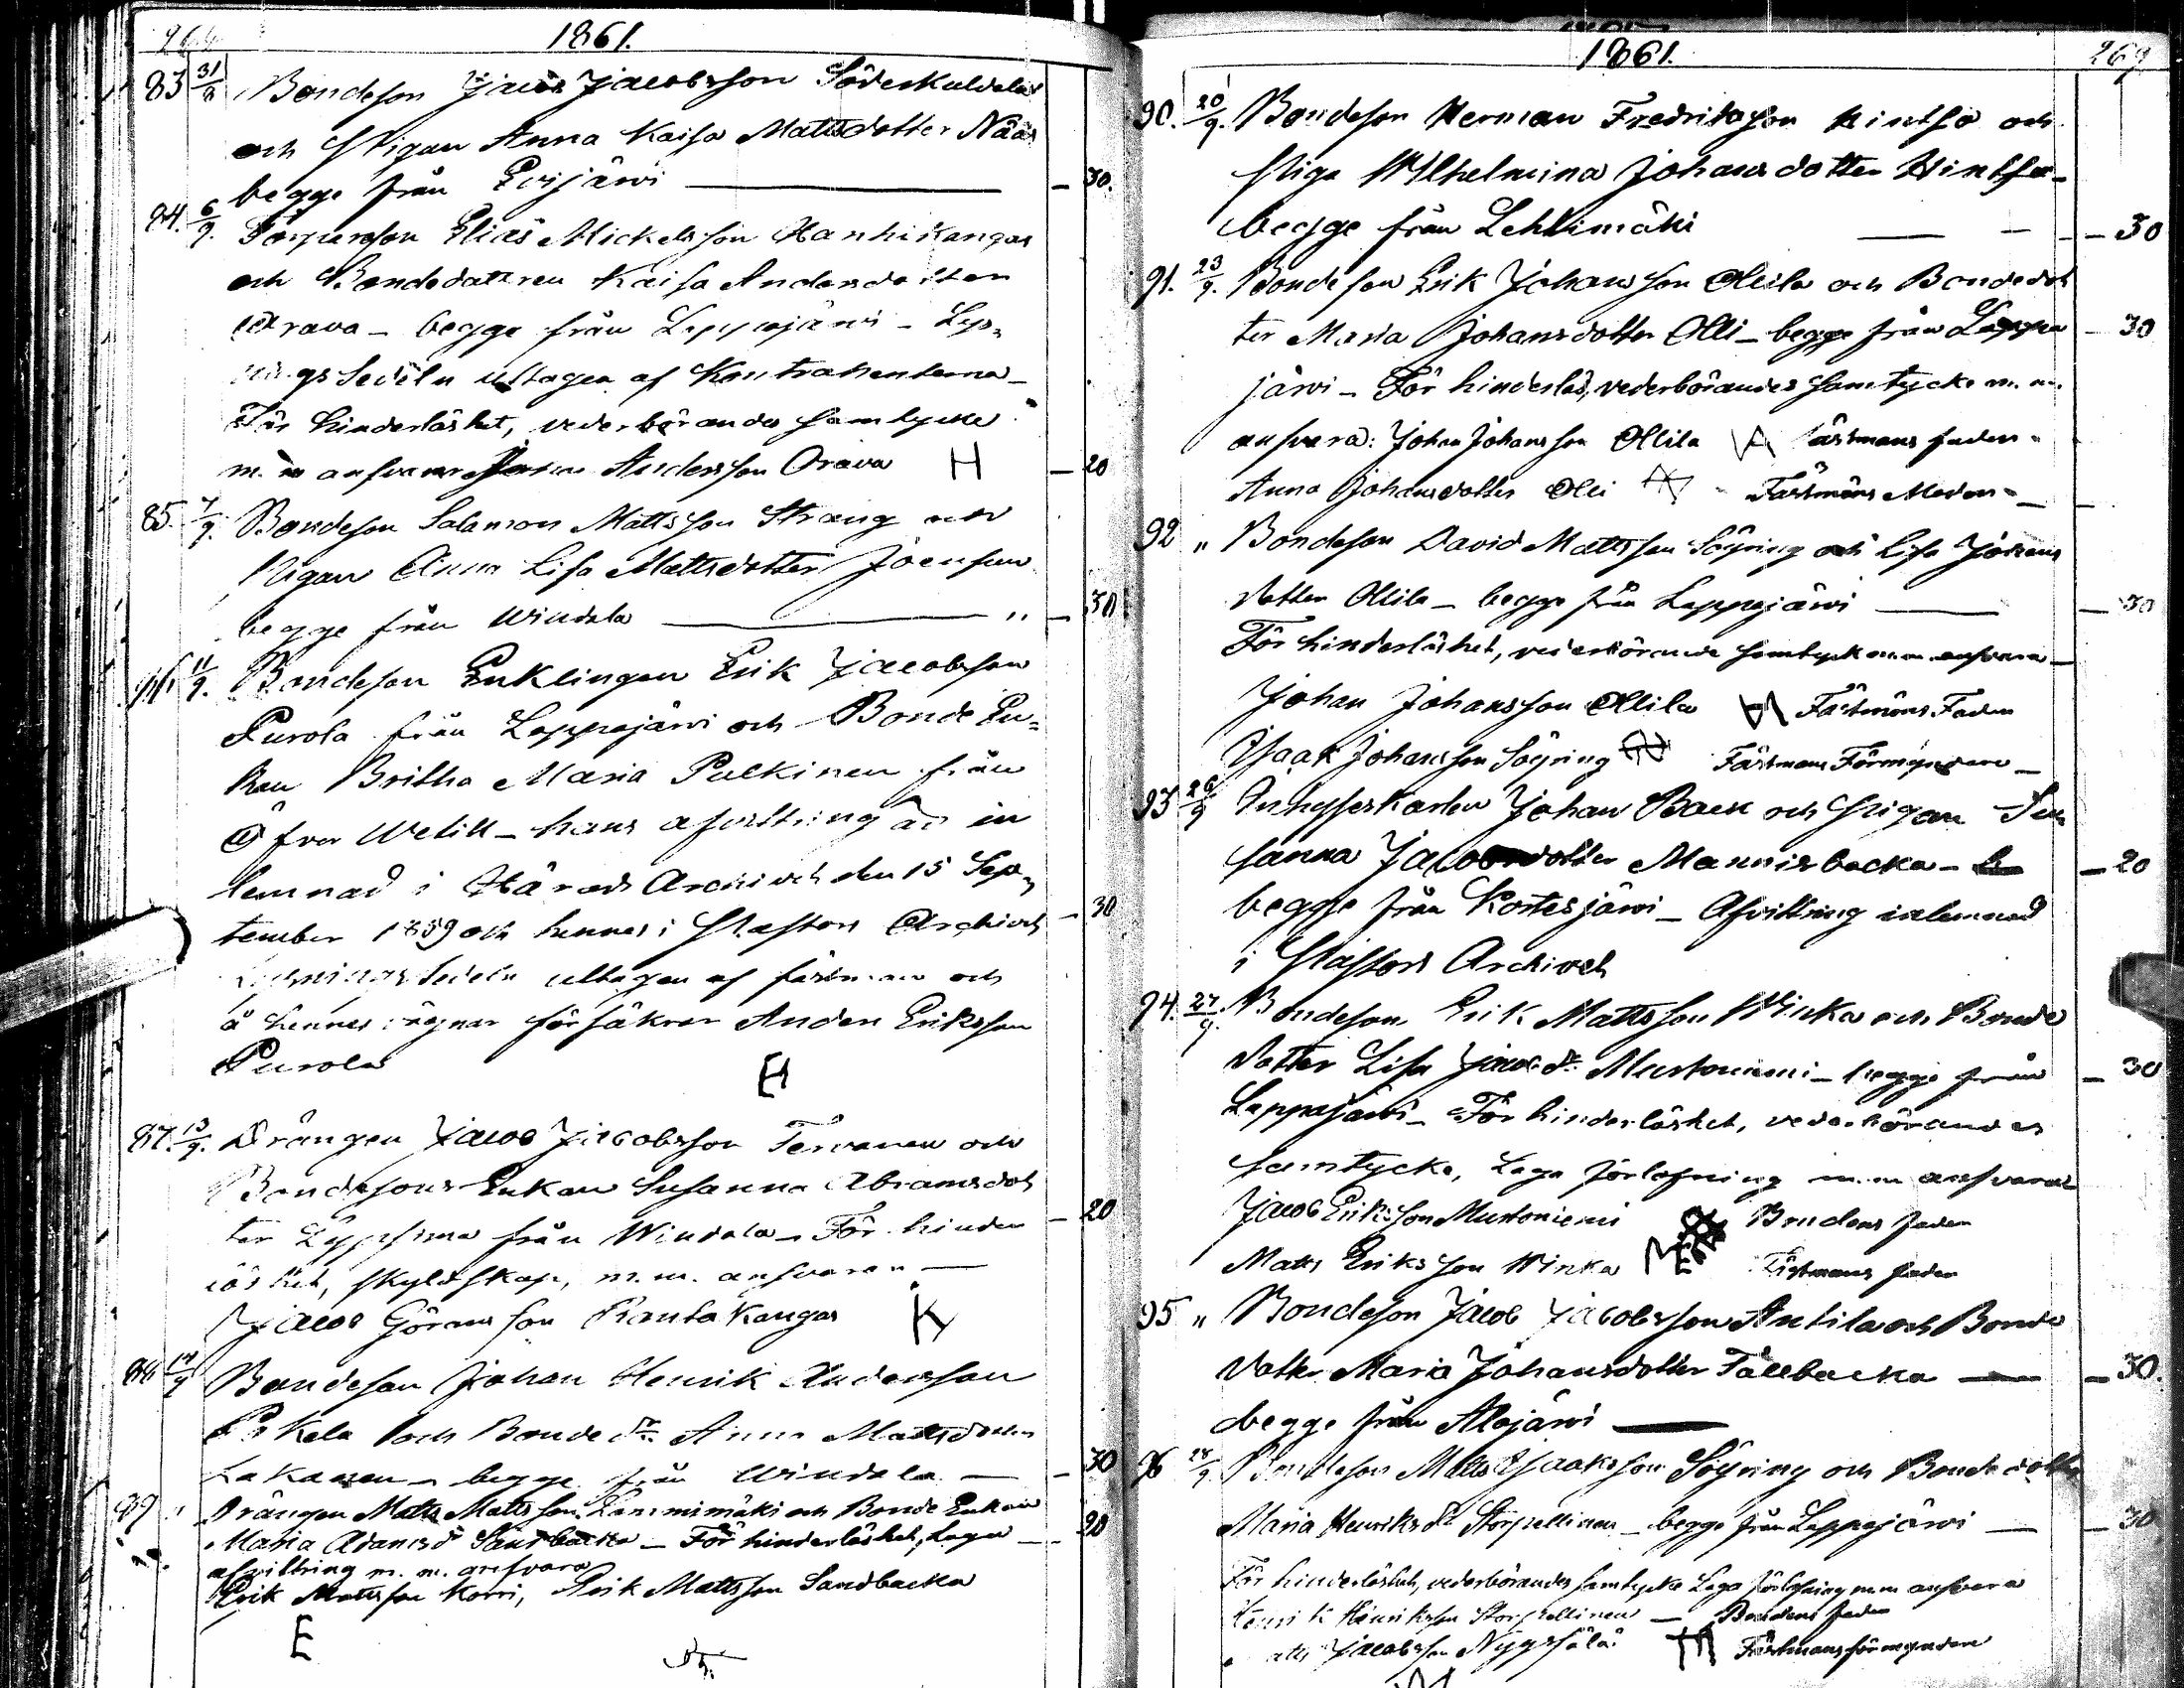 264
1861.
83 31/8 Bondeson Jacob Jacobsson Söderkuldala
och Pigan Anna Kaisa Mattsdotter Nääs
begge från Evijärvi — 30.
84. 6/9. Torparson Elias Mickelsson Hanhikangas
och Bondedottren Kaisa Andersdotter
Orava – begge från Lappajärvi – Lys-
nings Sedeln uttagen af Kontrahenterna –
För hinderlöshet, vederbörandes samtycke
m. m ansvarar Andersson Orava H — 20
85. 7/9. Bondeson Salamon Mattsson Strang och
Pigan Anna Lisa Mattsdotter Joensuu
begge från Windala — " — 30
86 11/9. Bondeson Enklingen Erik Jacobsson
Purola från Lappajärvi och Bonde En-
kan Britha Maria Pulkinen från
Öfver Wetill – hans afvittring är in
lemnad i Härads Archivet den 15 Sep-
tember 1859 och hennes i Pastors Archivet — 30
Lysnings Sedeln uttagen af fästman och
å hennes vägnar försäkrar Anders Eriksson
Purola
H
87. 13/9. Drängen Jacob Jacobsson Tervanen och
Bondesons Enkan Susanna Abramsdot
ter från Windala – För hinder — 20
löshet, skyldskap, m. m. ansvaren —
Jacob Göransson Rantakangas K
88 14/9 Bondeson Johan Henrik Andersson
och Bonde dr. Anna Mattsdotter
Lakanen – begge från Windala — 30
89 " Drängen Matts Mattsson Lammimäki och Bonde Enkan
Maria Adamsdr Sandbacka – För hinderlöshet, Laga — 20
afvittring m. m. ansvara
Erik Mattsson Korri, Erik Mattsson Sandbacka
E
1861.
269
90. 20/9. Bondeson Herman Fredriksson Hintsa och
Piga Wilhelmina Johansdotter Hintsa –
begge från Lehtimäki — 30
91. 23/9. Bondeson Erik Johansson Ollila och Bondedot
ter Maria Johansdotter Olli – begge från Lappa — 30
järvi – För hinderlös, vederbörandes samtycke m. m.
ansvara: Johan Johansson Ollila Fästmans fader
Anna Johansdotter Olli Fästmöns Moder –
92 " Bondeson David Mattsson Söyring och Lisa Johans
dotter Ollila – begge från Lappajärvi — 30
För hinderlöshet, vederbörande samtyck m.m. ansvara –
Johan Johansson Ollila Fästmöns Fader
Isaak Johansson Söyring Fästmans Förmyndare –
93 26/9 Inhyseskarlen Johan Back och Pigan Su
sanna Jacobsdotter Mannisbacka – — 20
begge från Kortesjärvi – Afvittring inlemnad
i Pastors Archivet
94. 27/9. Bondeson Erik Mattsson Winka och Bonde
dotter Lisa Jacobsdr Mustoniemi – begge från — 30
Lappajärvi – För hinderlöshet, vederbörandes
samtycke, Laga förlofning m. m ansvarar
Jacob Eriksson Mustoniemi Brudens fader
Matts Eriksson Winka Fästmans fader
95 " Bondeson Jacob Jacobsson Antila och Bonde
dotter Maria Johansdotter Tallbacka — 30.
begge från Alajärvi —
96 28/9. Bondeson Matts Isaaksson Söyring och Bondedotter
Maria Henriksdr Storpellinen – begge från Lappajärvi — 30
För hinderlöshet, vederbörandes samtycke Laga förlofning m m ansvara
Henrik Henriksson Storpellinen — Brudens fader
Matts Jacobsson Fästmans förmyndare